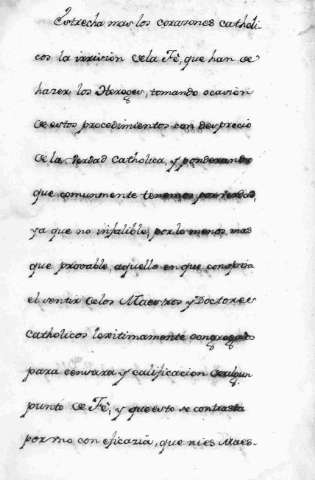 Estrecha mas los corasones catholi
cos la irrision de la Fè, que han de
hazer los Hereges, tomando ocasion
de estos procedimientos con desprecio
de la verdad catholica, y ponderando
que comunmente tenemos por verdad,
ya que no infalible, por lo menos mas
que provable, aquello en que conspira
el sentir de los Maestros y Doctores
catholicos lexitimamente congregados
para censura y calificacion de algun
punto de Fè, y que esto se contrasta
por uno con eficazia, que ni es Maes-